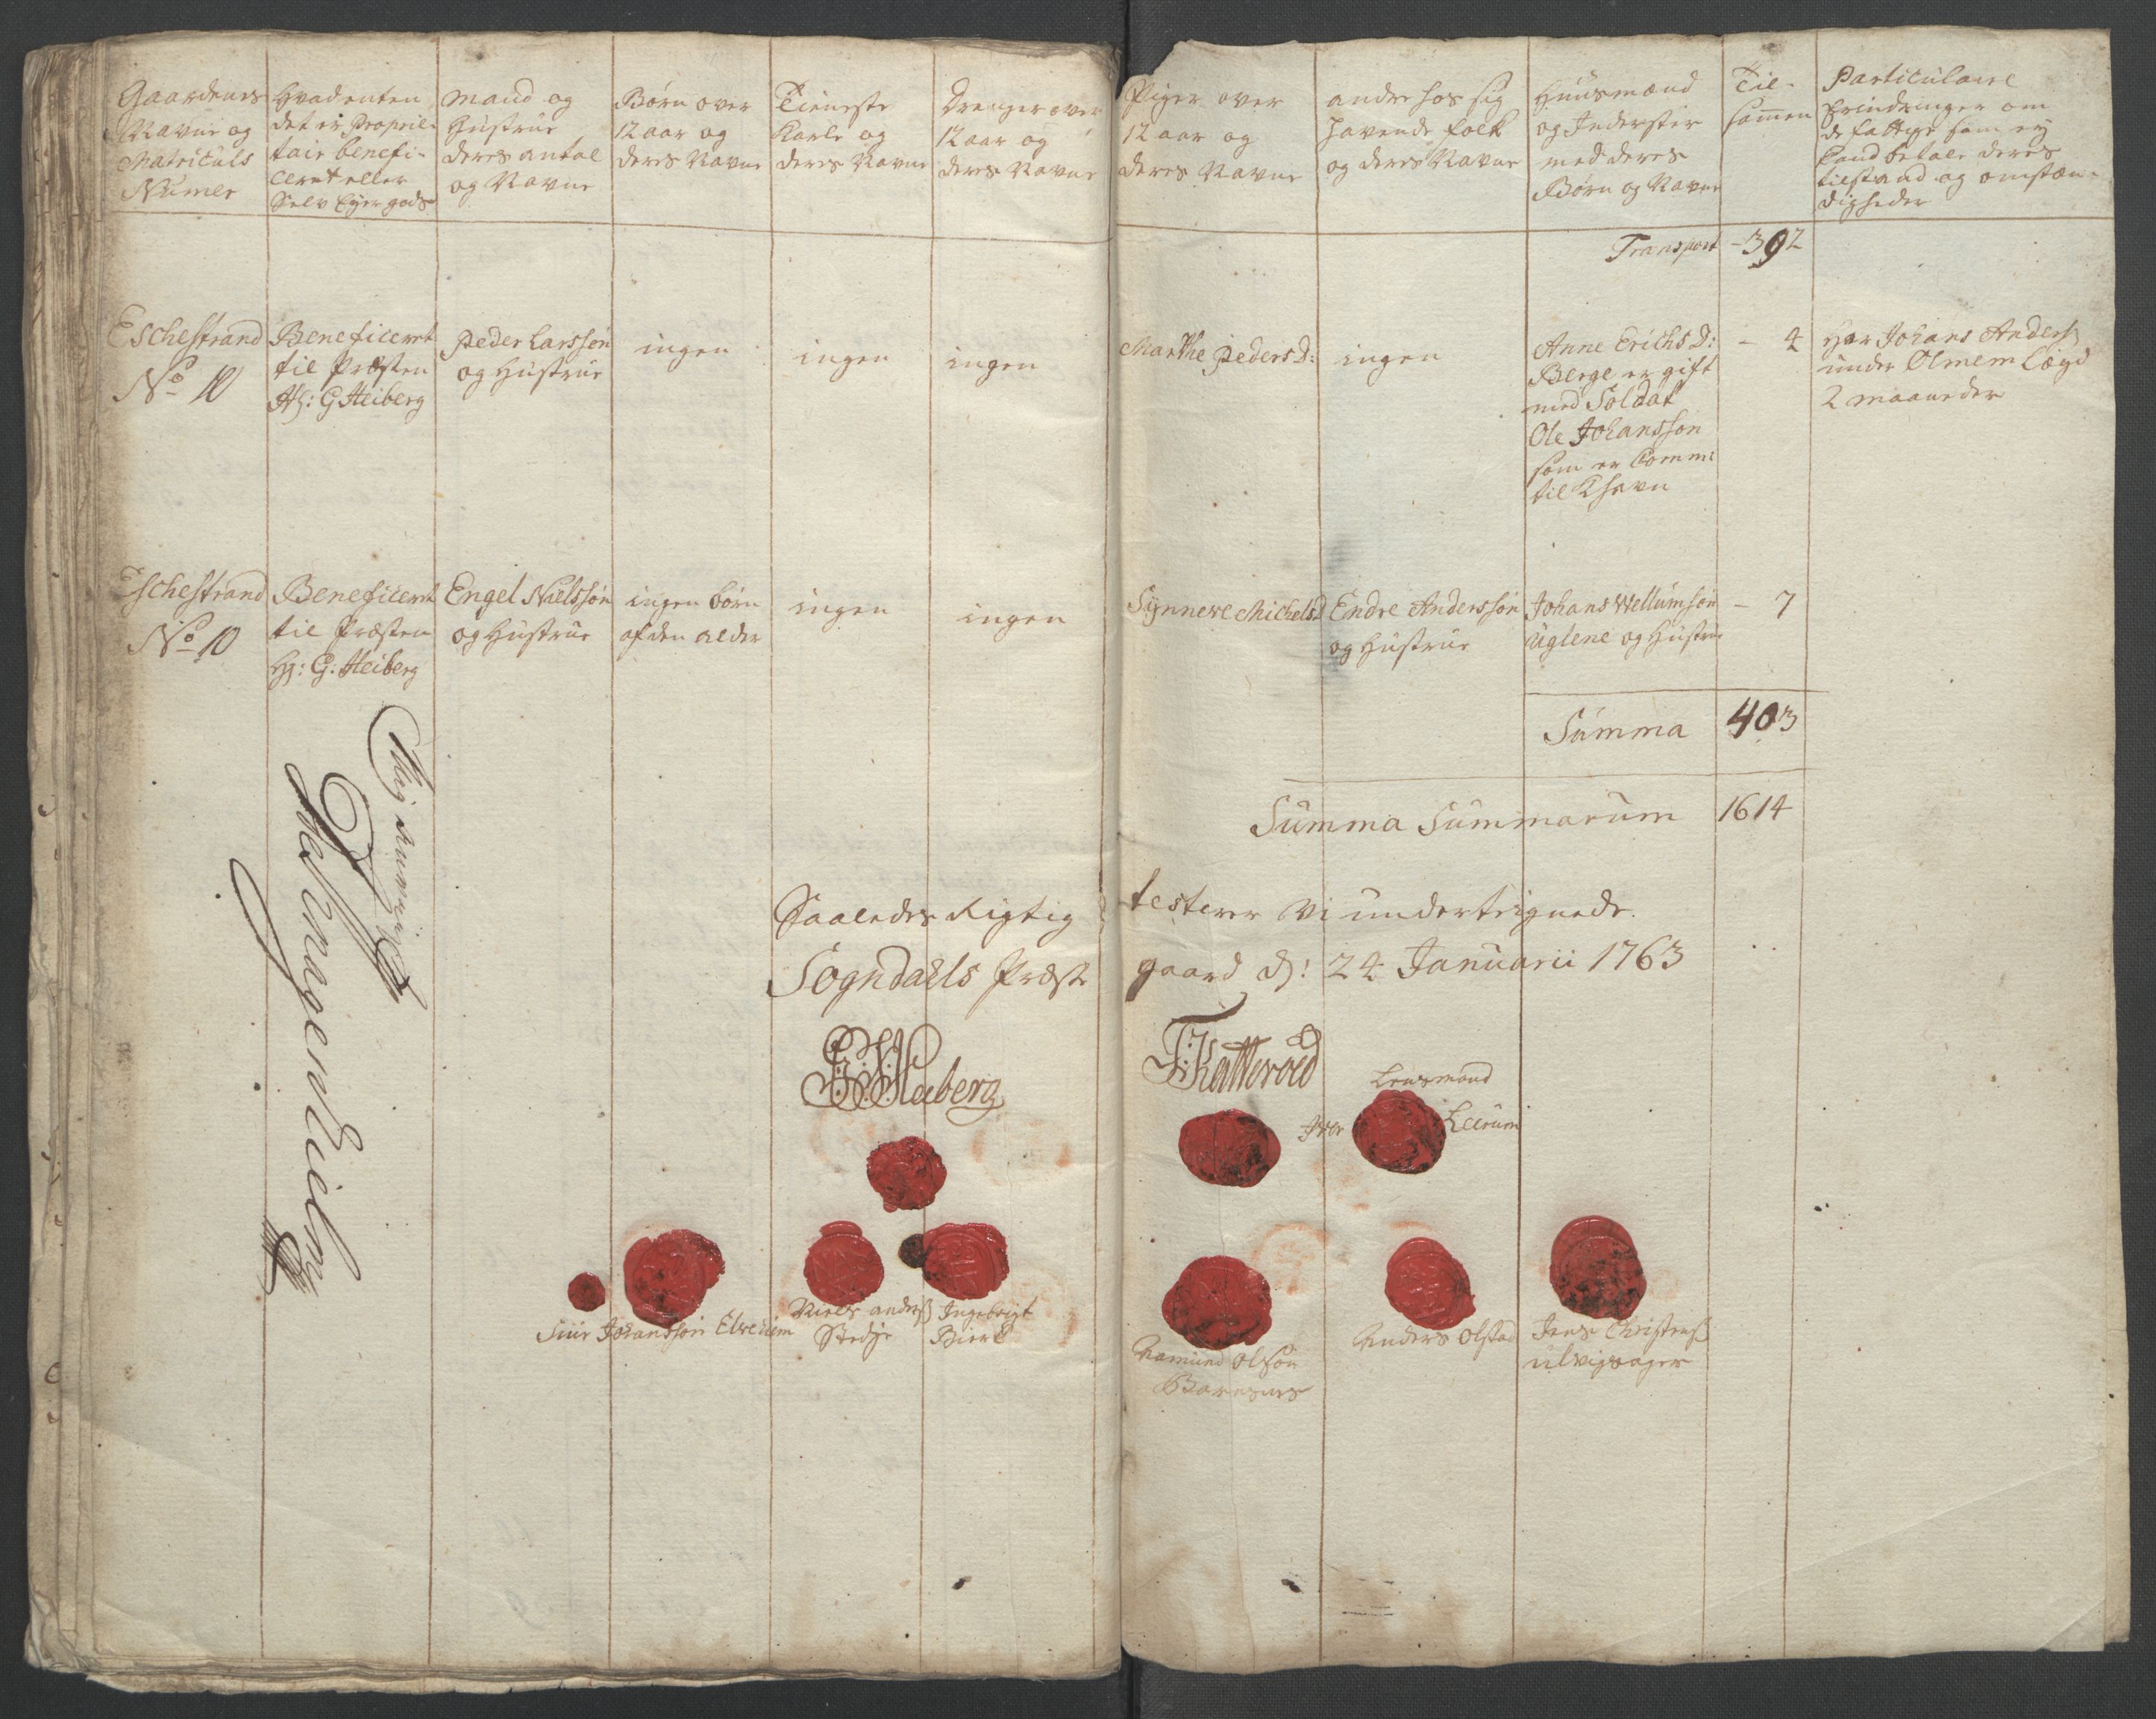 Gaardenes
Navne og
Matriculs
Numer
Hvad enten
det er Proprie-
tair benefi-
ceret eller
Selv Eyer gods
mand og
Hustrue
deres antal
og Navne
Børn over
12 aar og
deres Navne
Tieneste
Karle og
deres Navne
Drenger over
12 aar og
deres Navne
Piger over
12 aar og
deres Navne
andre hos sig
havende folk
og deres Navne
Huusmænd
og Inderster
med deres
Børn og Navne
Til-
sammen
Particulaire
Erindringer om
de fattige som ey
kand betale deres
tilstand og omstæn-
digheder
Transport - 392
Eschestrand
No 10
Beneficeret
til Præsten
Hr: G Heiberg
Peder Larssøn
og Hustrue
ingen
ingen
ingen
Marthe PedersD:
ingen
Anne ErichsD:
Berge er gift
med Soldat
Ole Johanssøn
som er Comm:
til Khavn
- 4
Har Johans Anders:
under Olmem Lægd
2 maaneder
Eschestrand
No 10
Beneficeret
til Præsten
Hr: G: Heiberg
Engel Nielssøn
og Hustrue
ingen børn
af den alder
ingen
ingen
Synneve MichelsD
Endre Anderssøn
og Hustrue
Johans Wellumsøn
Uglene og Hustrue
- 7
Summa 403
Summa Summarum 1614
Saaledes Rigtig testerer Vi undertegnede.
Sogndahls Præste gaard d: 24 Januarii 1763
G: Heiberg
Lensmand
Iver Leerum
Siur Johanssøn Elvenim
Niels anders
Stedje
Ingebrigt
Bierk
Aamund Olsøn
Barsnes
Anders Olstad
Jens Christens
ulvigsager